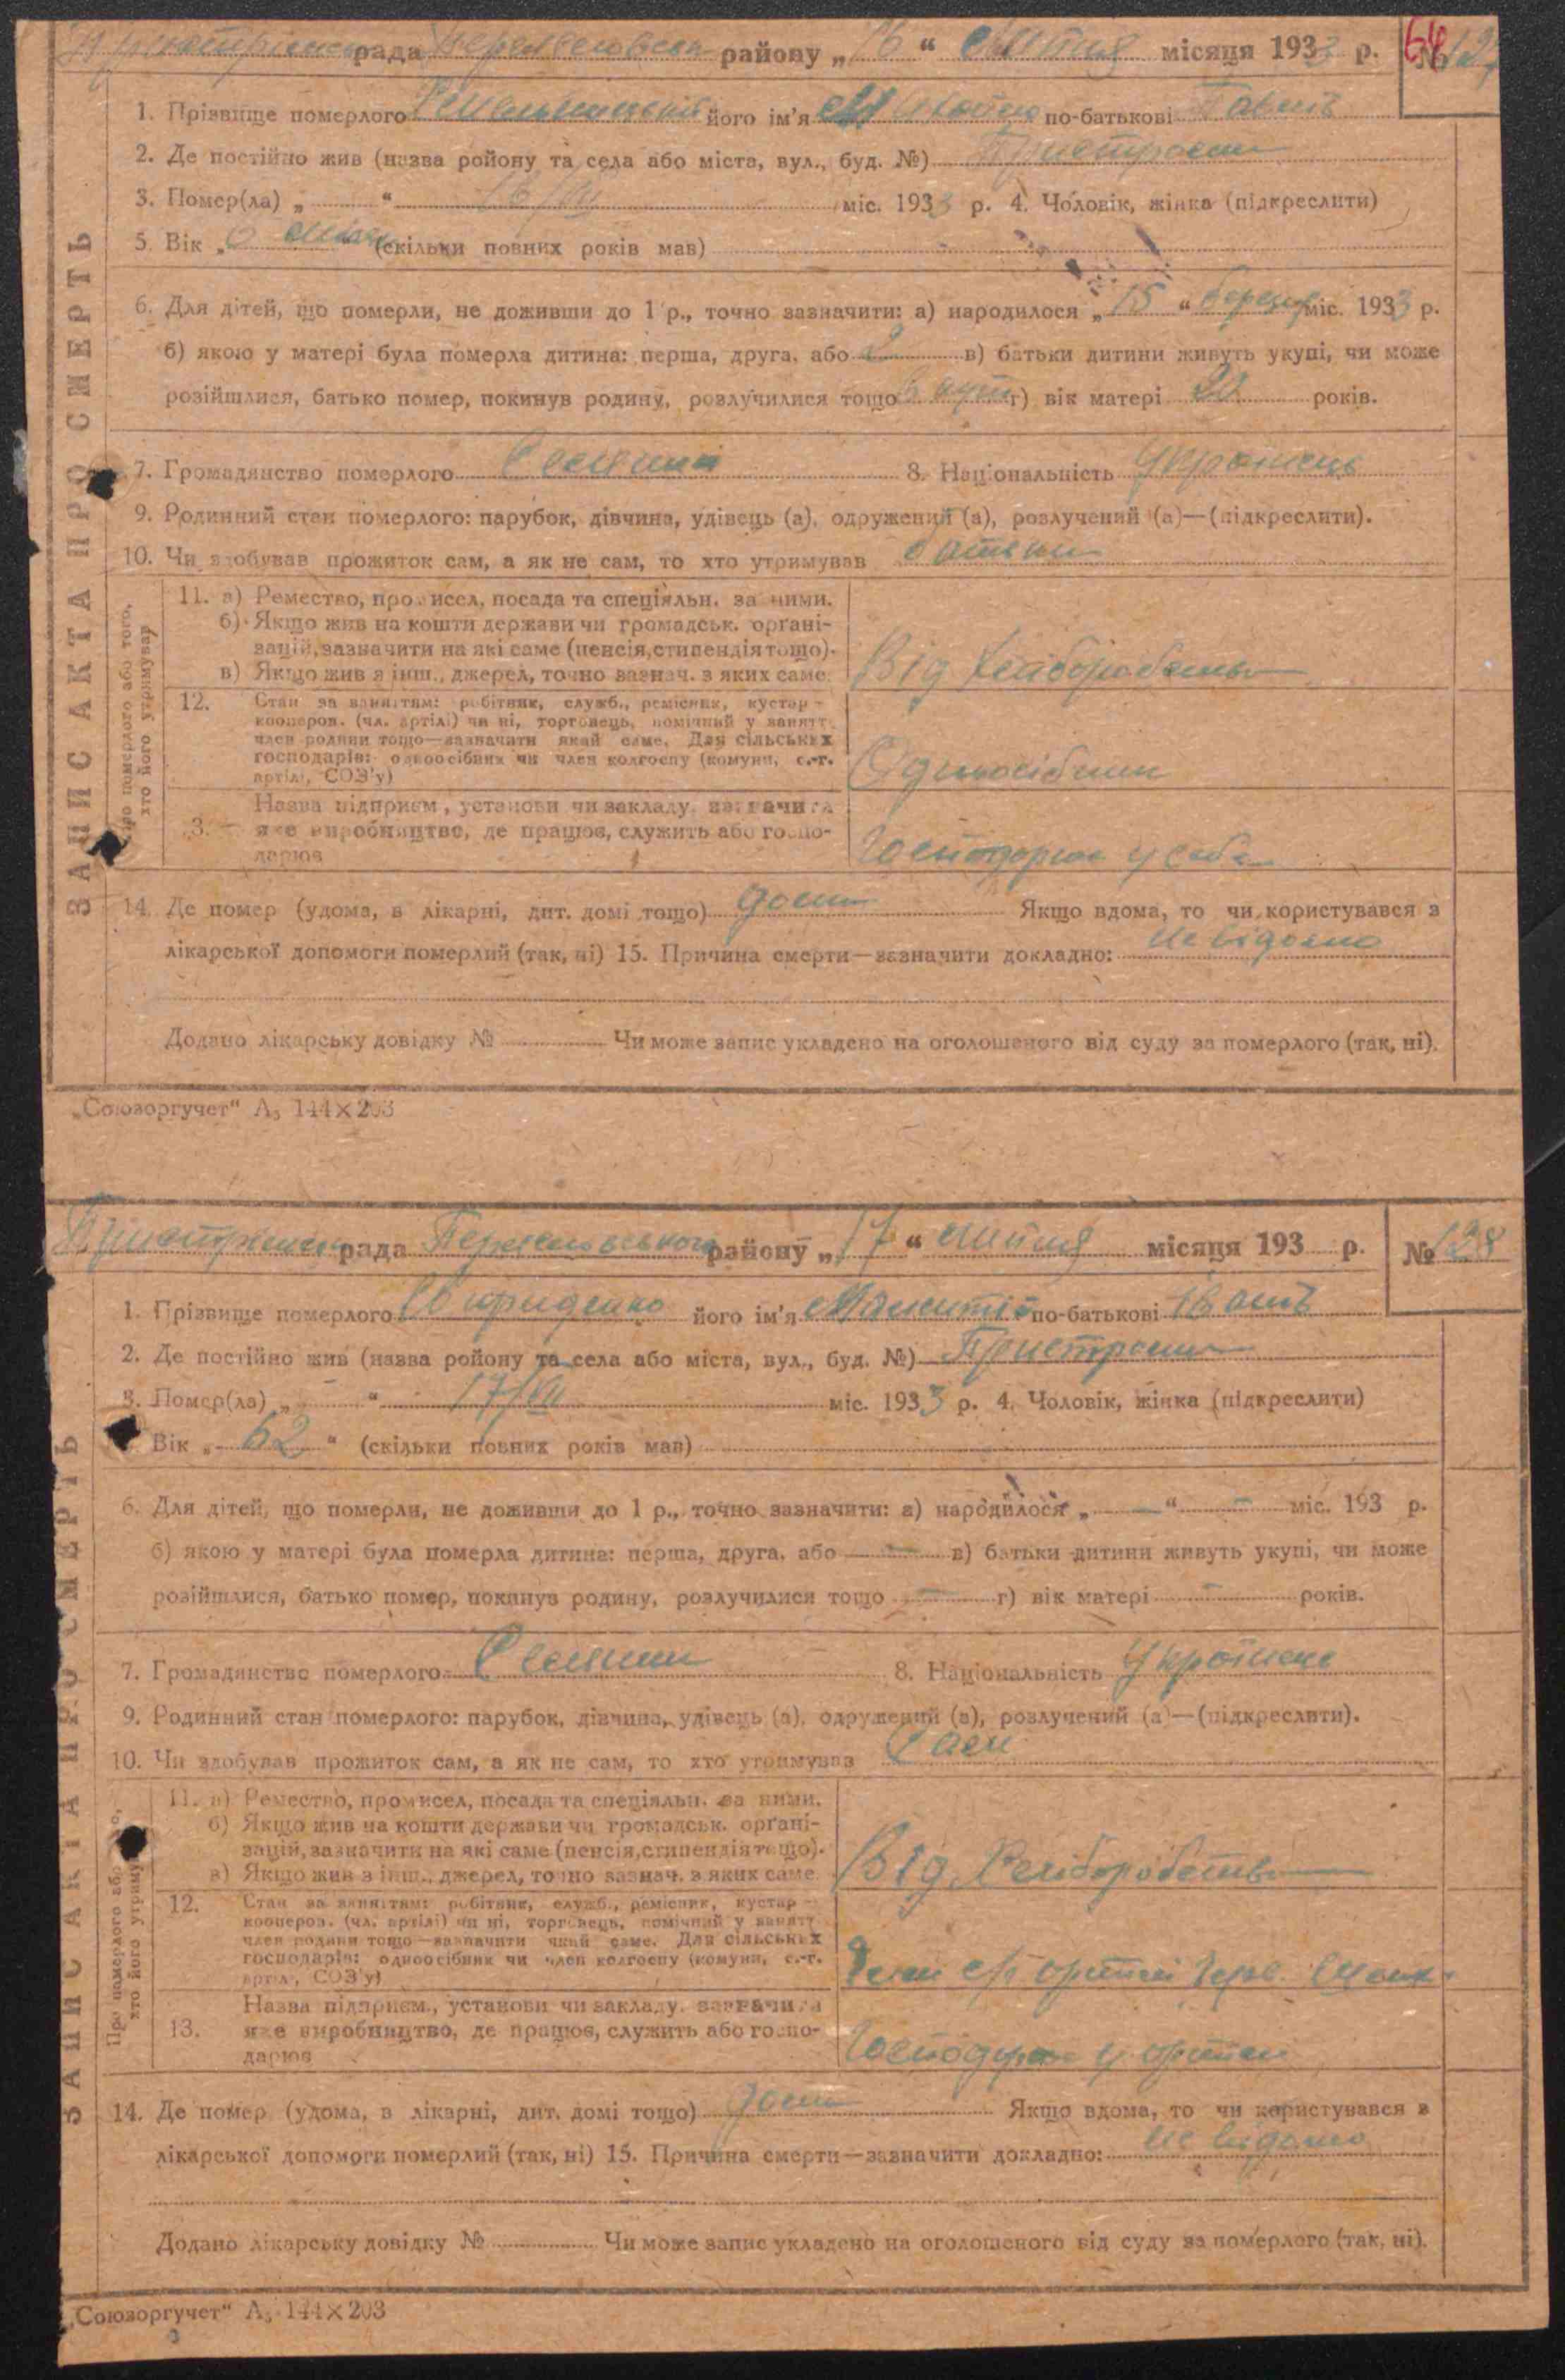 рада району „16“ липня місяця 1933 р. 64 №127
ЗАПИС АКТА ПРО СМЕРТЬ
1. Прізвище померлого його ім'я по-батькові
2. Де постійно жив (назва ройону та села або міста, вул., буд. №) Пристроми
3. Помер(ла) „ “ 16/VII міс. 1933 р. 4. Чоловік, жінка (підкреслити)
5. Вік „ (скільки повних років мав)
6. Для дітей, що померли, не доживши до 1 р., точно зазначити: а) народилося „15“ березня міс. 1933 р.
б) якою у матері була померла дитина: перша, друга, або 2 в) батьки дитини живуть укупі, чи може
розійшлися, батько помер, покинув родину, розлучилися тощо г) вік матері років.
7. Громадянство померлого Селянин 8. Національність Українець
9. Родинний стан померлого: парубок, дівчина, удівець (а), одружений (а), розлучений (а)—(підкреслити).
10. Чи здобував прожиток сам, а як не сам, то хто утримував батьки
Про померлого або того,
хто його утримував
11. а) Ремество, промисел, посада та спеціяльн. за ними.
б) Якщо жив на кошти держави чи громадськ. органі-
зацій, зазначити на які саме (пенсія, стипендія тощо).
в) Якщо жив з інш., джерел, точно зазнач. з яких саме Від хліборобства
12. Стан за заняттям: робітник, служб., ремісник, кустар—
коопеpов. (чл. артілі) чи ні, торговець, помічний у занятт.
член родини тощо—зазначити який саме. Для сільських
господарів: одноосібник чи член колгоспу (комуни, с.-г.
артілі, СОЗ'у) Одноосібник
Назва підприєм., установи чи закладу, зазначити
13. яке виробництво, де працює, служить або госпо-
дарює Господарює у себе
14. Де помер (удома, в лікарні, дит. домі тощо) дома Якщо вдома, то чи користувався з
лікарської допомоги померлий (так, ні) 15. Причина смерти—зазначити докладно: Не відомо
Додано лікарську довідку № Чи може запис укладено на оголошеного від суду за померлого (так, ні).
„Союзоргучет“ А₅ 144×203
рада району „17“ липня місяця 193 р. №128
ЗАПИС АКТА ПРО СМЕРТЬ
1. Прізвище померлого його ім'я по-батькові Іван
2. Де постійно жив (назва ройону та села або міста, вул., буд. №) Пристроми
3. Помер(ла) „ “ 17/VII міс. 1933 р. 4. Чоловік, жінка (підкреслити)
Вік „62“ (скільки повних років мав)
6. Для дітей, що померли, не доживши до 1 р., точно зазначити: а) народилося „—“ — міс. 193 р.
б) якою у матері була померла дитина: перша, друга, або — в) батьки дитини живуть укупі, чи може
розійшлися, батько помер, покинув родину, розлучилися тощо — г) вік матері — років.
7. Громадянство померлого Селянин 8. Національність
9. Родинний стан померлого: парубок, дівчина, удівець (а), одружений (а), розлучений (а)—(підкреслити).
10. Чи здобував прожиток сам, а як не сам, то хто утримував Сам
Про померлого або того,
хто його утримував
11. а) Ремество, промисел, посада та спеціяльн. за ними.
б) Якщо жив на кошти держави чи громадськ. органі-
зацій, зазначити на які саме (пенсія, стипендія тощо).
в) Якщо жив з інш., джерел, точно зазнач. з яких саме Від Хліборобства
12. Стан за заняттям: робітник, служб., ремісник, кустар—
коопеpов. (чл. артілі) чи ні, торговець, помічний у занятт.
член родини тощо—зазначити який саме. Для сільських
господарів: одноосібник чи член колгоспу (комуни, с.-г.
артілі, СОЗ'у) Член с/г артілі
Назва підприєм., установи чи закладу, зазначити
13. яке виробництво, де працює, служить або госпо-
дарює Господарює у артілі
14. Де помер (удома, в лікарні, дит. домі тощо) дома Якщо вдома, то чи користувався з
лікарської допомоги померлий (так, ні) 15. Причина смерти—зазначити докладно: Не відомо
Додано лікарську довідку № Чи може запис укладено на оголошеного від суду за померлого (так, ні).
„Союзоргучет“ А₅ 144×203